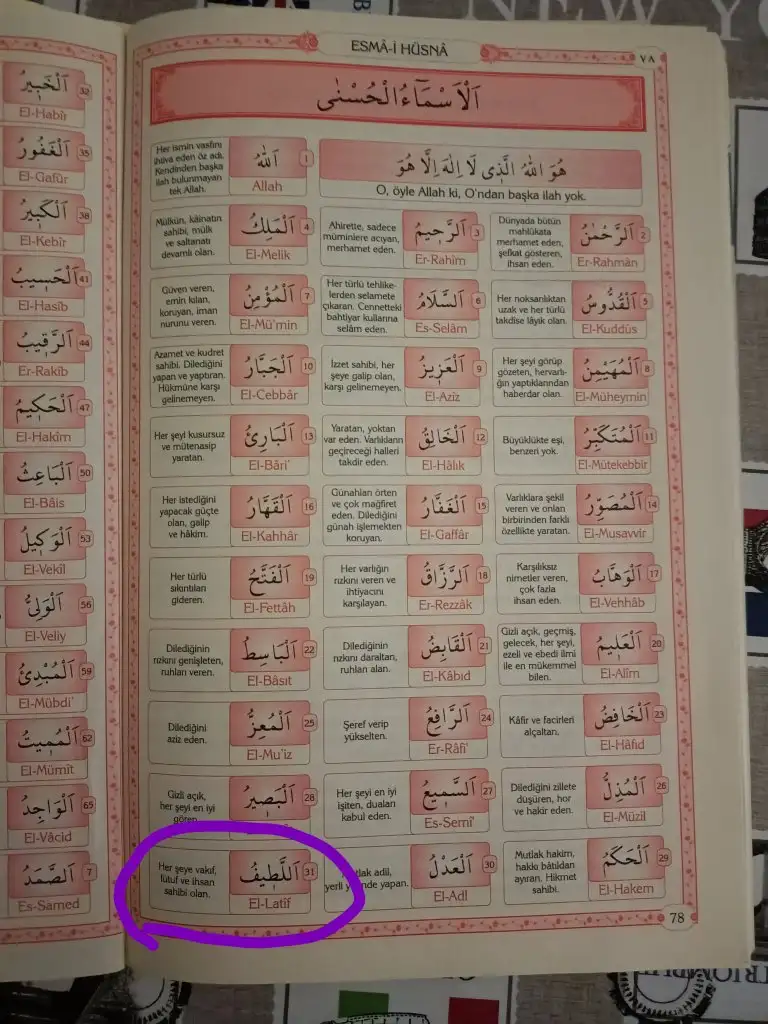 ESMÂ-İ HÜSNÂ
٧٨
اَلْاَسْمَٓاءُ الْحُسْنٰى
هُوَ اللّٰهُ الَّذٖى لَٓا اِلٰهَ اِلَّا هُوَ
O, öyle Allah ki, O'ndan başka ilah yok.
1
اَللّٰهُ
Allah
Her ismin vasfını
ihtiva eden öz adı.
Kendinden başka
ilah bulunmayan
tek Allah.
2
اَلرَّحْمٰنُ
Er-Rahmân
Dünyada bütün
mahlûkata
merhamet eden,
şefkat gösteren,
ihsan eden.
3
اَلرَّحٖيمُ
Er-Rahîm
Ahirette, sadece
müminlere acıyan,
merhamet eden.
4
اَلْمَلِكُ
El-Melik
Mülkün, kâinatın
sahibi, mülk
ve saltanatı
devamlı olan.
5
اَلْقُدُّوسُ
El-Kuddûs
Her noksanlıktan
uzak ve her türlü
takdise lâyık olan.
6
اَلسَّلَامُ
Es-Selâm
Her türlü tehlike-
lerden selamete
çıkaran. Cennetteki
bahtiyar kullarına
selâm eden.
7
اَلْمُؤْمِنُ
El-Mü'min
Güven veren,
emin kılan,
koruyan, iman
nurunu veren.
8
اَلْمُهَيْمِنُ
El-Müheymin
Her şeyi görüp
gözeten, hervarlı-
ğın yaptıklarından
haberdar olan.
9
اَلْعَزٖيزُ
El-Azîz
İzzet sahibi, her
şeye galip olan,
karşı gelinemeyen.
10
اَلْجَبَّارُ
El-Cebbâr
Azamet ve kudret
sahibi. Dilediğini
yapan ve yaptıran.
Hükmüne karşı
gelinemeyen.
11
اَلْمُتَكَبِّرُ
El-Mütekebbir
Büyüklükte eşi,
benzeri yok.
12
اَلْخَالِقُ
El-Hâlık
Yaratan, yoktan
var eden. Varlıkların
geçireceği halleri
takdir eden.
13
اَلْبَارِئُ
El-Bâri'
Her şeyi kusursuz
ve mütenasip
yaratan.
14
اَلْمُصَوِّرُ
El-Musavvir
Varlıklara şekil
veren ve onları
birbirinden farklı
özellikte yaratan.
15
اَلْغَفَّارُ
El-Gaffâr
Günahları örten
ve çok mağfiret
eden. Dilediğini
günah işlemekten
koruyan.
16
اَلْقَهَّارُ
El-Kahhâr
Her istediğini
yapacak güçte
olan, galip
ve hâkim.
17
اَلْوَهَّابُ
El-Vehhâb
Karşılıksız
nimetler veren,
çok fazla
ihsan eden.
18
اَلرَّزَّاقُ
Er-Rezzâk
Her varlığın
rızkını veren ve
ihtiyacını
karşılayan.
19
اَلْفَتَّحُ
El-Fettâh
Her türlü
sıkıntıları
gideren.
20
اَلْعَلٖيمُ
El-Alîm
Gizli açık, geçmiş,
gelecek, her şeyi,
ezeli ve ebedi ilmi
ile en mükemmel
bilen.
21
اَلْقَابِضُ
El-Kâbıd
Dilediğinin
rızkını daraltan,
ruhları alan.
22
اَلْبَاسِطُ
El-Bâsıt
Dilediğinin
rızkını genişleten,
ruhları veren.
23
اَلْخَافِضُ
El-Hâfıd
Kâfir ve facirleri
alçaltan.
24
اَلرَّافِعُ
Er-Râfi'
Şeref verip
yükselten.
25
اَلْمُعِزُّ
El-Mu'iz
Dilediğini
aziz eden.
26
اَلْمُذِلُّ
El-Müzil
Dilediğini zillete
düşüren, hor
ve hakir eden.
27
اَلسَّمٖيعُ
Es-Semî'
Her şeyi en iyi
işiten, duaları
kabul eden.
28
اَلْبَصٖيرُ
Gizli açık,
her şeyi en iyi
gören.
29
اَلْحَكَمُ
El-Hakem
Mutlak hakim,
hakkı bâtıldan
ayıran. Hikmet
sahibi.
30
اَلْعَدْلُ
El-Adl
adil,
yapan.
31
اَللَّطٖيفُ
El-Latîf
Her şeye vakıf,
lütuf ve ihsan
sahibi olan.
78
32
اَلْخَبٖيرُ
El-Habîr
35
اَلْغَفُورُ
El-Gafûr
38
اَلْكَبٖيرُ
El-Kebîr
41
اَلْحَسٖيبُ
El-Hasîb
44
اَلرَّقٖيبُ
Er-Rakîb
47
اَلْحَكٖيمُ
El-Hakîm
50
اَلْبَاعِثُ
El-Bâis
53
اَلْوَكٖيلُ
El-Vekîl
56
اَلْوَلِىُّ
El-Veliy
59
اَلْمُبْدِئُ
El-Mübdi'
62
اَلْمُمٖيتُ
El-Mümît
65
اَلْوَاجِدُ
El-Vâcid
اَلصَّمَدُ
Es-Samed
NEW YO